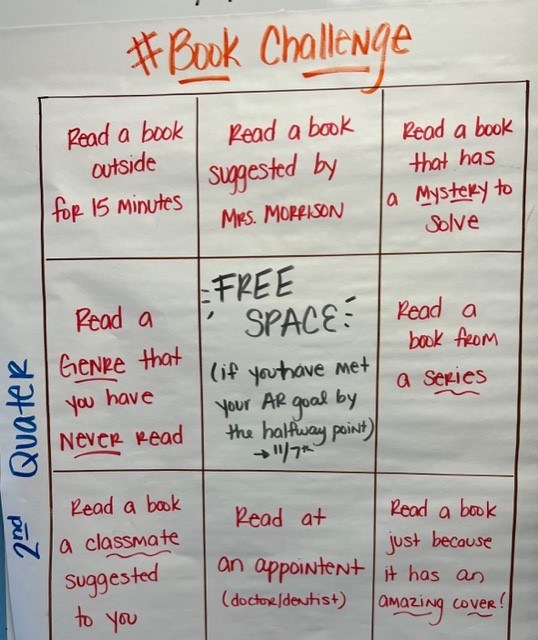 #Book Challenge
Read a book
outside
for 15 minutes
Read a book
suggested by
Mrs. Morrison
Read a book
that has
a Mystery to
Solve
Read a
Genre that
you have
Never Read
FREE
SPACE
(if you have met
your AR goal by
the halfway point)
→ 11/7th
Read a
book from
a series
Read a book
a classmate
suggested
to you
Read at
an appointent
(doctor/dentist)
Read a book
just because
it has an
amazing cover!
2nd Quater